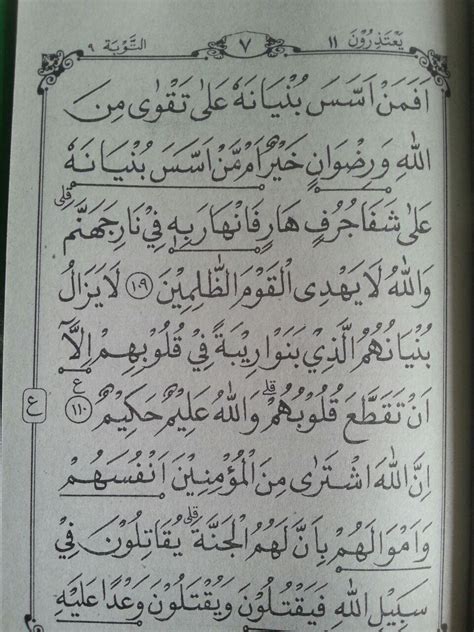 يَعْتَذِرُوْنَ ١١ ٧ التَّوْبَة ٩
اَفَمَنْ اَسَّسَ بُنْيَانَهٗ عَلٰى تَقْوٰى مِنَ
اللّٰهِ وَرِضْوَانٍ خَيْرٌ اَمْ مَّنْ اَسَّسَ بُنْيَانَهٗ
عَلٰى شَفَا جُرُفٍ هَارٍ فَانْهَارَ بِهٖ فِيْ نَارِ جَهَنَّمَ ۗ
وَاللّٰهُ لَا يَهْدِى الْقَوْمَ الظّٰلِمِيْنَ ١٠٩ لَا يَزَالُ
بُنْيَانُهُمُ الَّذِيْ بَنَوْا رِيْبَةً فِيْ قُلُوْبِهِمْ اِلَّآ
اَنْ تَقَطَّعَ قُلُوْبُهُمْ ۗ وَاللّٰهُ عَلِيْمٌ حَكِيْمٌ ١١٠ ع
اِنَّ اللّٰهَ اشْتَرٰى مِنَ الْمُؤْمِنِيْنَ اَنْفُسَهُمْ
وَاَمْوَالَهُمْ بِاَنَّ لَهُمُ الْجَنَّةَ ۗ يُقَاتِلُوْنَ فِيْ
سَبِيْلِ اللّٰهِ فَيَقْتُلُوْنَ وَيُقْتَلُوْنَ وَعْدًا عَلَيْهِ